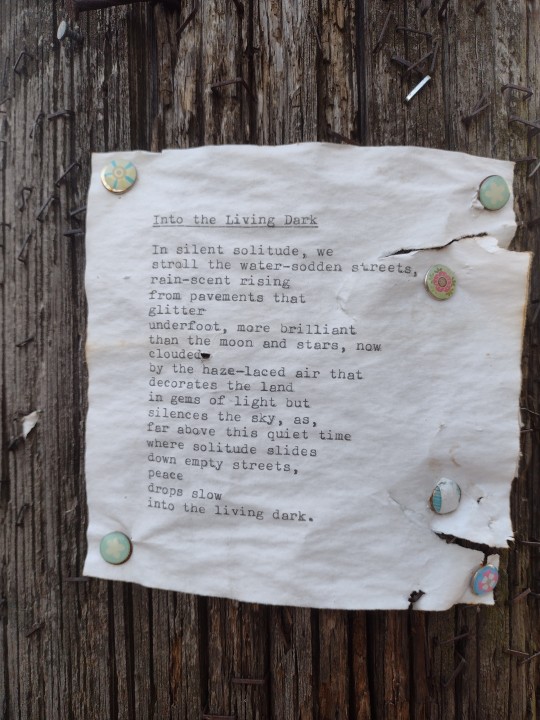 Into the Living Dark
In silent solitude, we
stroll the water-sodden streets,
rain-scent rising
from pavements that
glitter
underfoot, more brilliant
than the moon and stars, now
clouded
by the haze-laced air that
decorates the land
in gems of light but
silences the sky, as,
far above this quiet time
where solitude slides
down empty streets,
peace
drops slow
into the living dark.